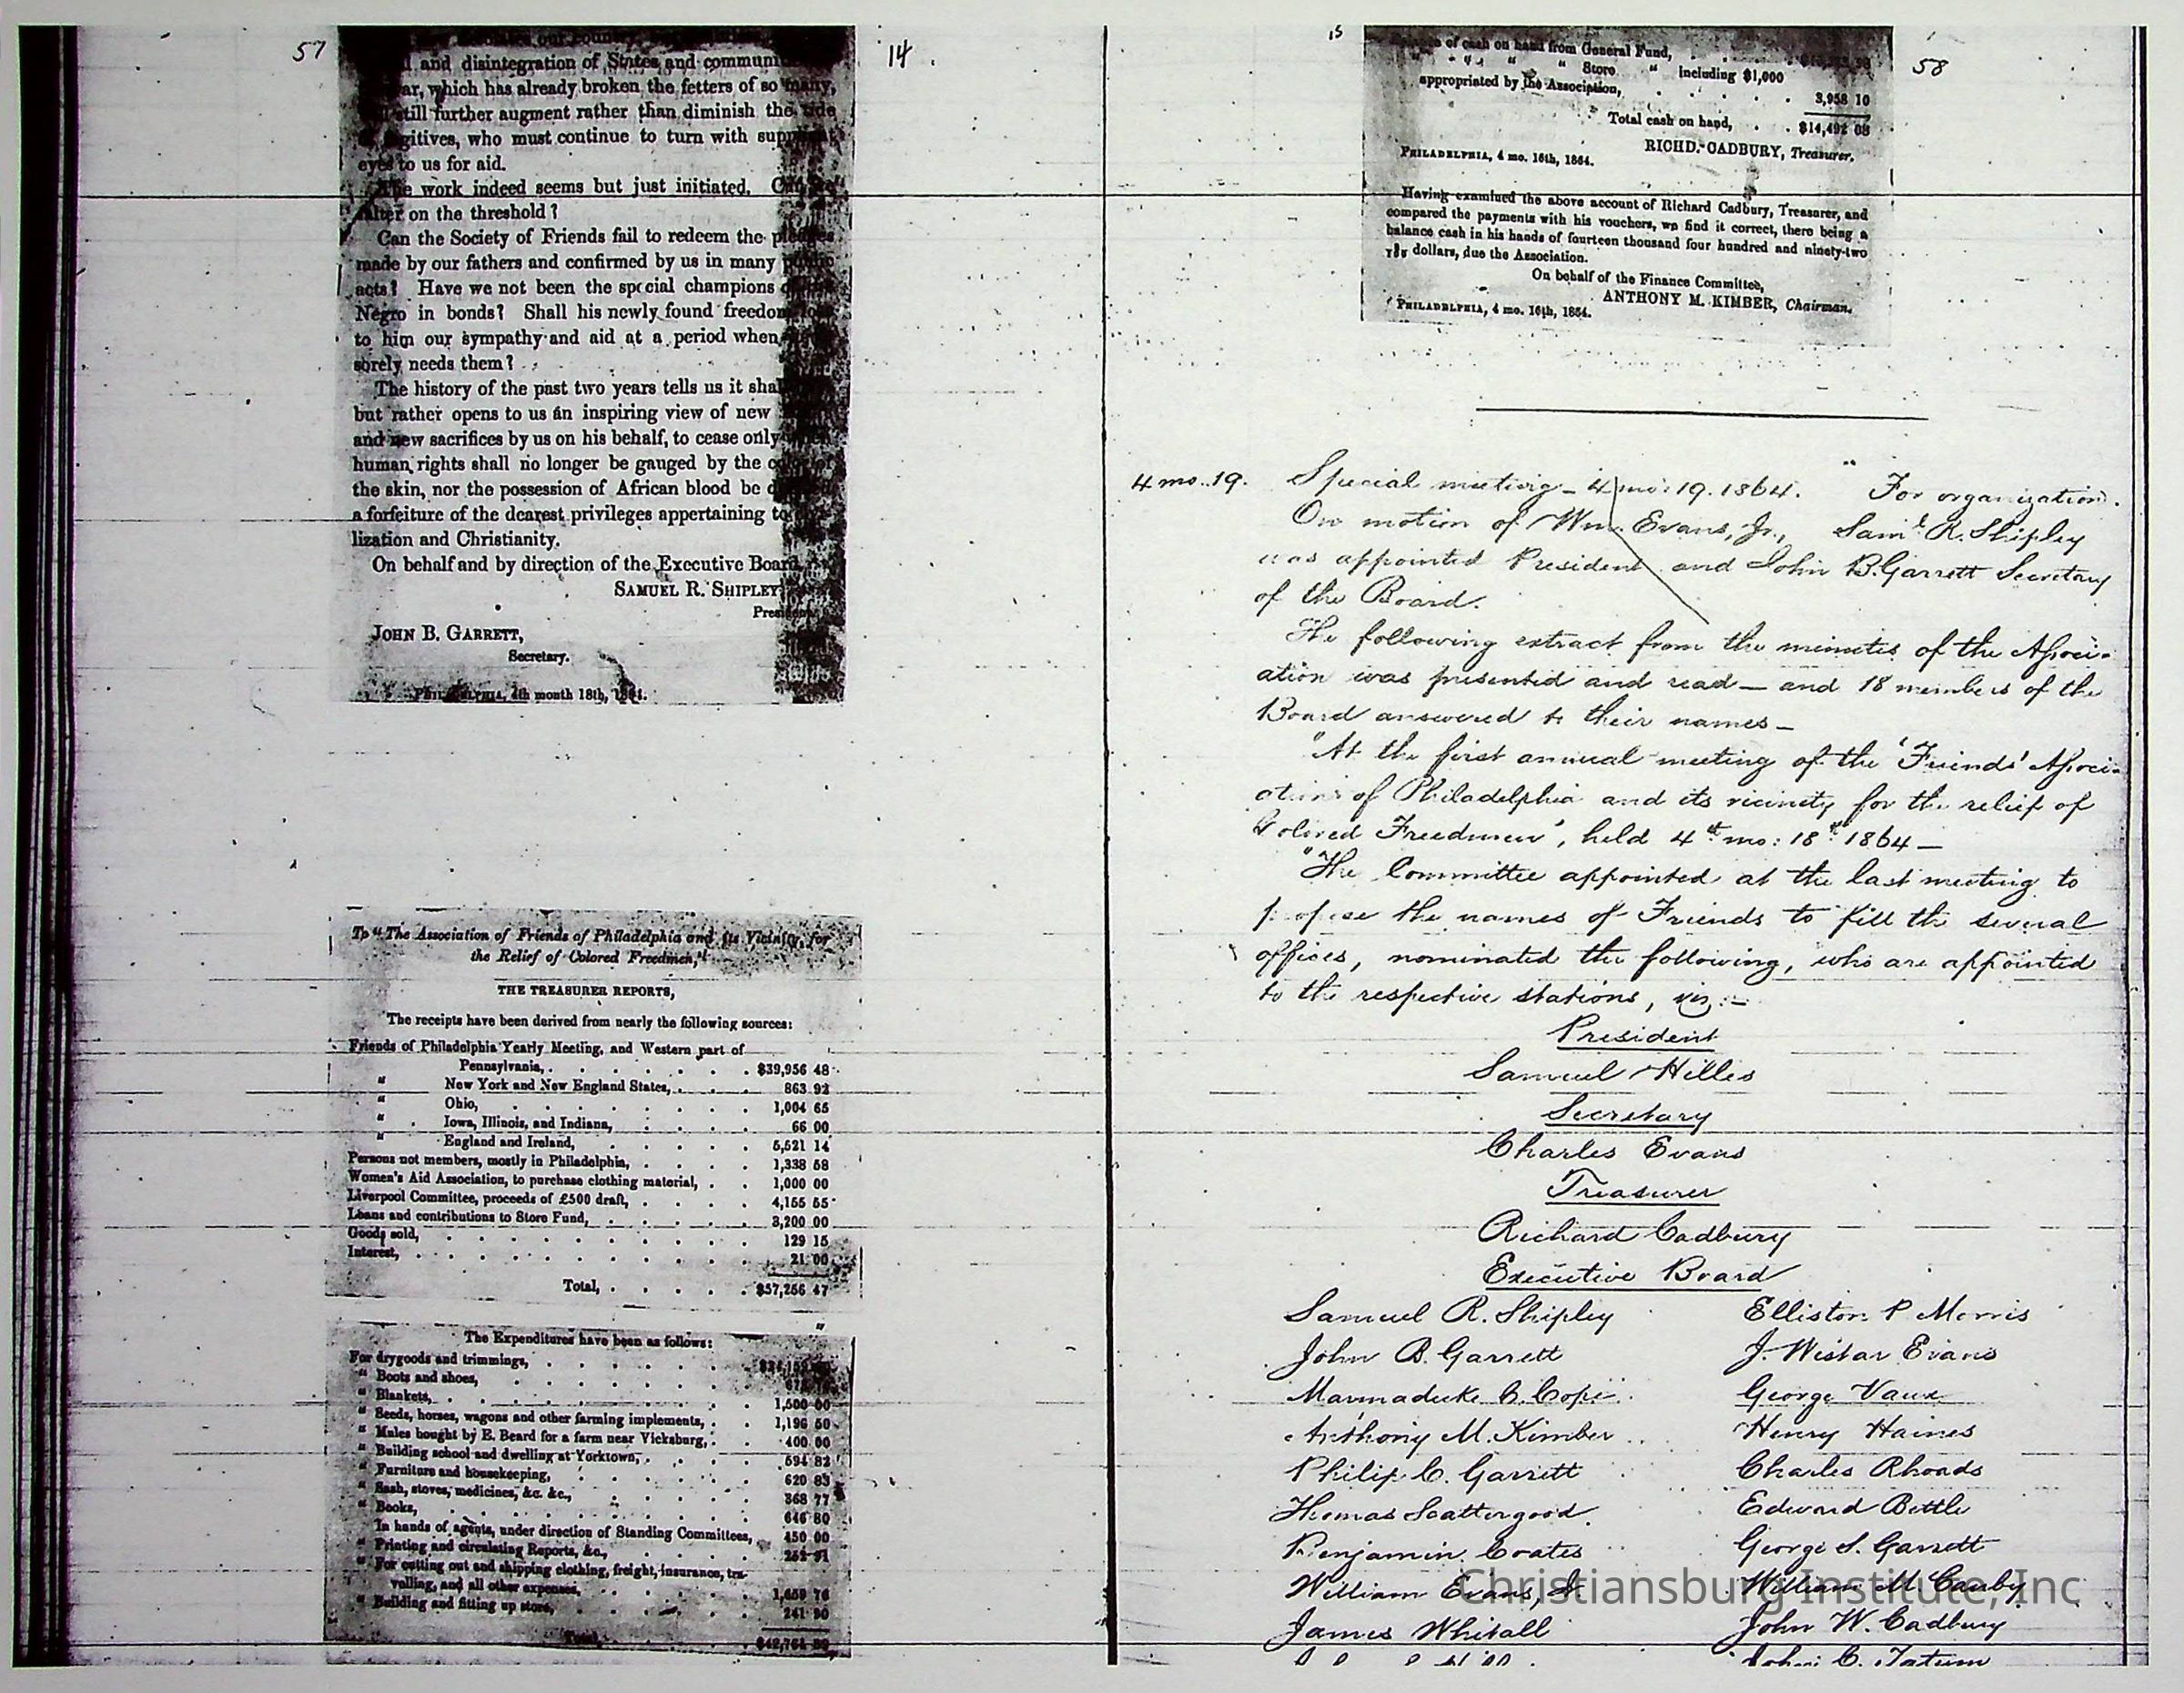 57
14
and disintegration of States and communi
ar, which has already broken the fetters of so many,
still further augment rather than diminish the tide
gitives, who must continue to turn with suppliant
eyes to us for aid.
The work indeed seems but just initiated.
falter on the threshold?
Can the Society of Friends fail to redeem the pledges
made by our fathers and confirmed by us in many public
acts? Have we not been the special champions
Negro in bonds? Shall his newly found freedom
to him our sympathy and aid at a period when
sorely needs them?
The history of the past two years tells us it shal
but rather opens to us an inspiring view of new
and new sacrifices by us on his behalf, to cease only
human rights shall no longer be gauged by the color of
the skin, nor the possession of African blood be
a forfeiture of the dearest privileges appertaining to
lization and Christianity.
On behalf and by direction of the Executive Board,
SAMUEL R. SHIPLEY
President.
JOHN B. GARRETT,
Secretary.
PHILADELPHIA, 4th month 18th, 1864.
To "The Association of Friends of Philadelphia and its Vicinity, for
the Relief of Colored Freedmen,"
THE TREASURER REPORTS,
The receipts have been derived from nearly the following sources:
Friends of Philadelphia Yearly Meeting, and Western part of
Pennsylvania, . . . . . . . $39,956 48
" New York and New England States, . . . 863 92
" Ohio, . . . . . . . . 1,004 65
" Iowa, Illinois, and Indiana, . . . . 66 00
" England and Ireland, . . . . . 5,521 14
Persons not members, mostly in Philadelphia, . . . . 1,338 58
Women's Aid Association, to purchase clothing material, . . 1,000 00
Liverpool Committee, proceeds of £500 draft, . . . . 4,155 55
Loans and contributions to Store Fund, . . . . . 3,200 00
Goods sold, . . . . . . . . . 129 15
Interest, . . . . . . . . . . 21 00
Total, . . . . . $57,256 47
The Expenditures have been as follows:
For drygoods and trimmings, . . . . . .
" Boots and shoes, . . . . . . .
" Blankets, . . . . . . . . 1,500 00
" Seeds, horses, wagons and other farming implements, . . 1,196 50
" Mules bought by E. Beard for a farm near Vicksburg, . . 400 00
" Building school and dwelling at Yorktown, . . . . 594 82
" Furniture and housekeeping, . . . . . 620 83
" Sash, stoves, medicines, &c. &c., . . . . . 368 77
" Books, . . . . . . . . . 646 80
In hands of agents, under direction of Standing Committees, 450 00
" Printing and circulating Reports, &c., . . . . 252 91
" For cutting out and shipping clothing, freight, insurance, tra-
velling, and all other expenses, . . . . . 1,659 76
" Building and fitting up store, . . . . . . 241 90
Total,
15
58
of cash on hand from General Fund,
" " " " Store " including $1,000
appropriated by the Association, . . . . . 3,958 10
Total cash on hand, . . $14,492 08
RICHD. CADBURY, Treasurer.
PHILADELPHIA, 4 mo. 16th, 1864.
Having examined the above account of Richard Cadbury, Treasurer, and
compared the payments with his vouchers, we find it correct, there being a
balance cash in his hands of fourteen thousand four hundred and ninety-two
dollars, due the Association.
On behalf of the Finance Committee,
ANTHONY M. KIMBER, Chairman.
PHILADELPHIA, 4 mo. 16th, 1864.
4 mo. 19. Special meeting – 4 mo: 19. 1864. For organization.
On motion of Wm. Evans, Jr., Saml R. Shipley
was appointed President and John B. Garrett Secretary
of the Board.
The following extract from the minutes of the Associ-
ation was presented and read – and 18 members of the
Board answered to their names –
"At the first annual meeting of the 'Friends' Associ-
ation of Philadelphia and its vicinity for the relief of
Colored Freedmen', held 4th mo: 18th 1864 –
"The Committee appointed at the last meeting to
propose the names of Friends to fill the several
offices, nominated the following, who are appointed
to the respective stations, viz: –
President
Samuel Hilles
Secretary
Charles Evans
Treasurer
Richard Cadbury
Executive Board
Samuel R. Shipley Elliston P. Morris
John B. Garrett J. Wistar Evans
Marmaduke C. Cope George Vaux
Anthony M. Kimber Henry Haines
Philip C. Garrett Charles Rhoads
Thomas Scattergood Edward Bettle
Benjamin Coates George S. Garrett
William Evans, Jr William M. Canby
James Whitall John W. Cadbury
John C. Tatum
Christiansburg Institute, Inc